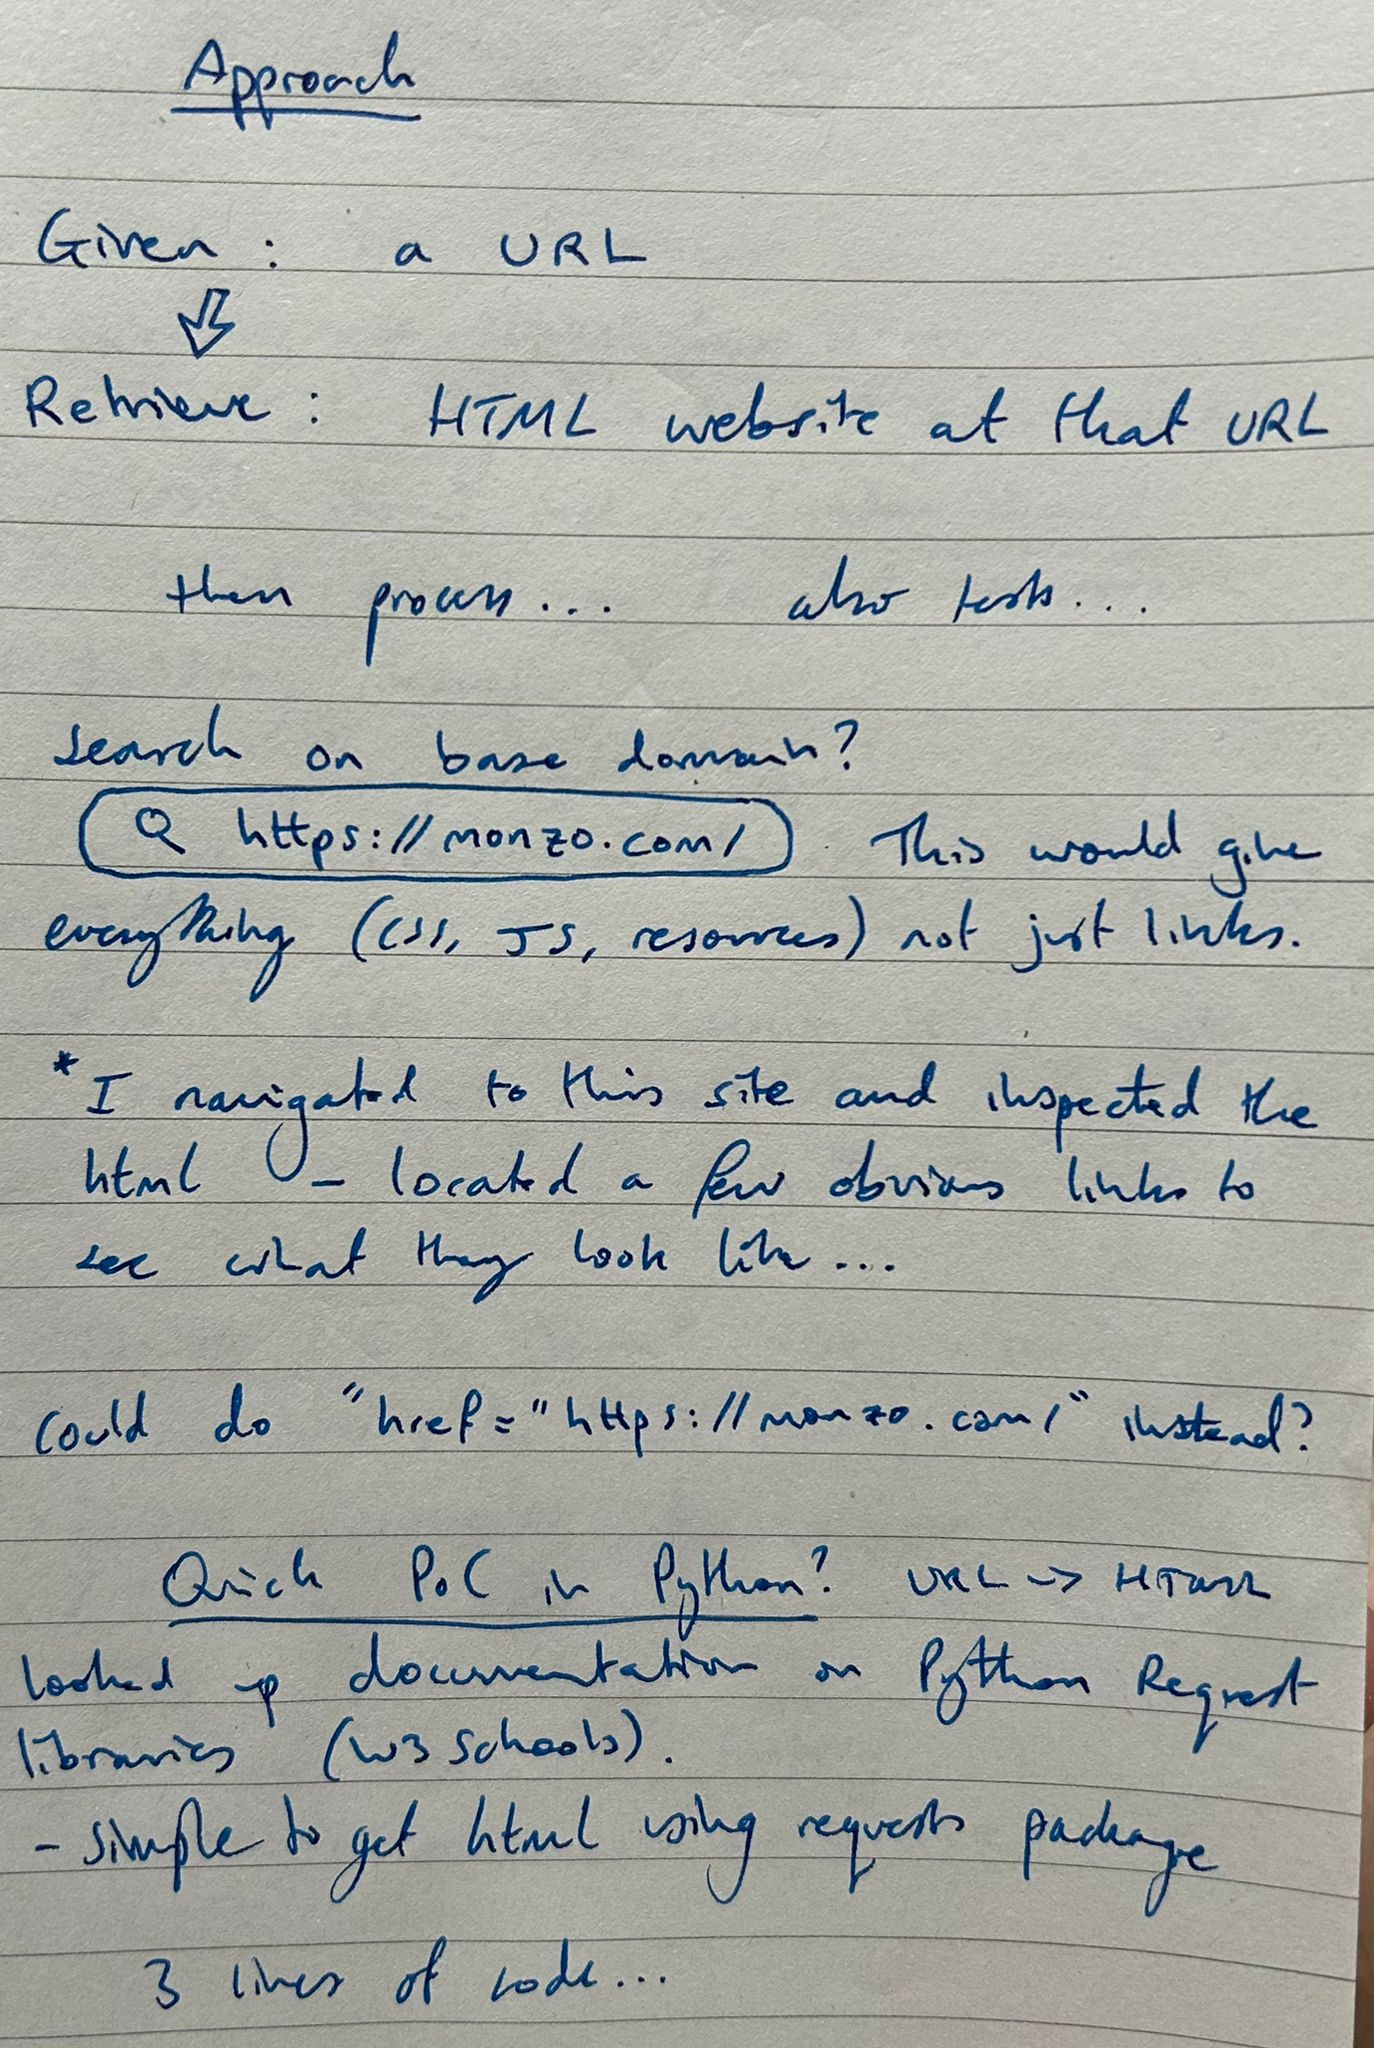 Approach
Given : a URL
Retrieve : HTML website at that URL
then process... also tests...
search on base domain?
https://monzo.com/ This would give
everything (CSS, JS, resources) not just links.
* I navigated to this site and inspected the
html - located a few obvious links to
see what they look like...
could do "href="https://monzo.com/" instead?
Quick PoC in Python? URL -> HTML
looked up documentation on Python Request
libraries (W3 Schools).
- simple to get html using requests package
3 lines of code...